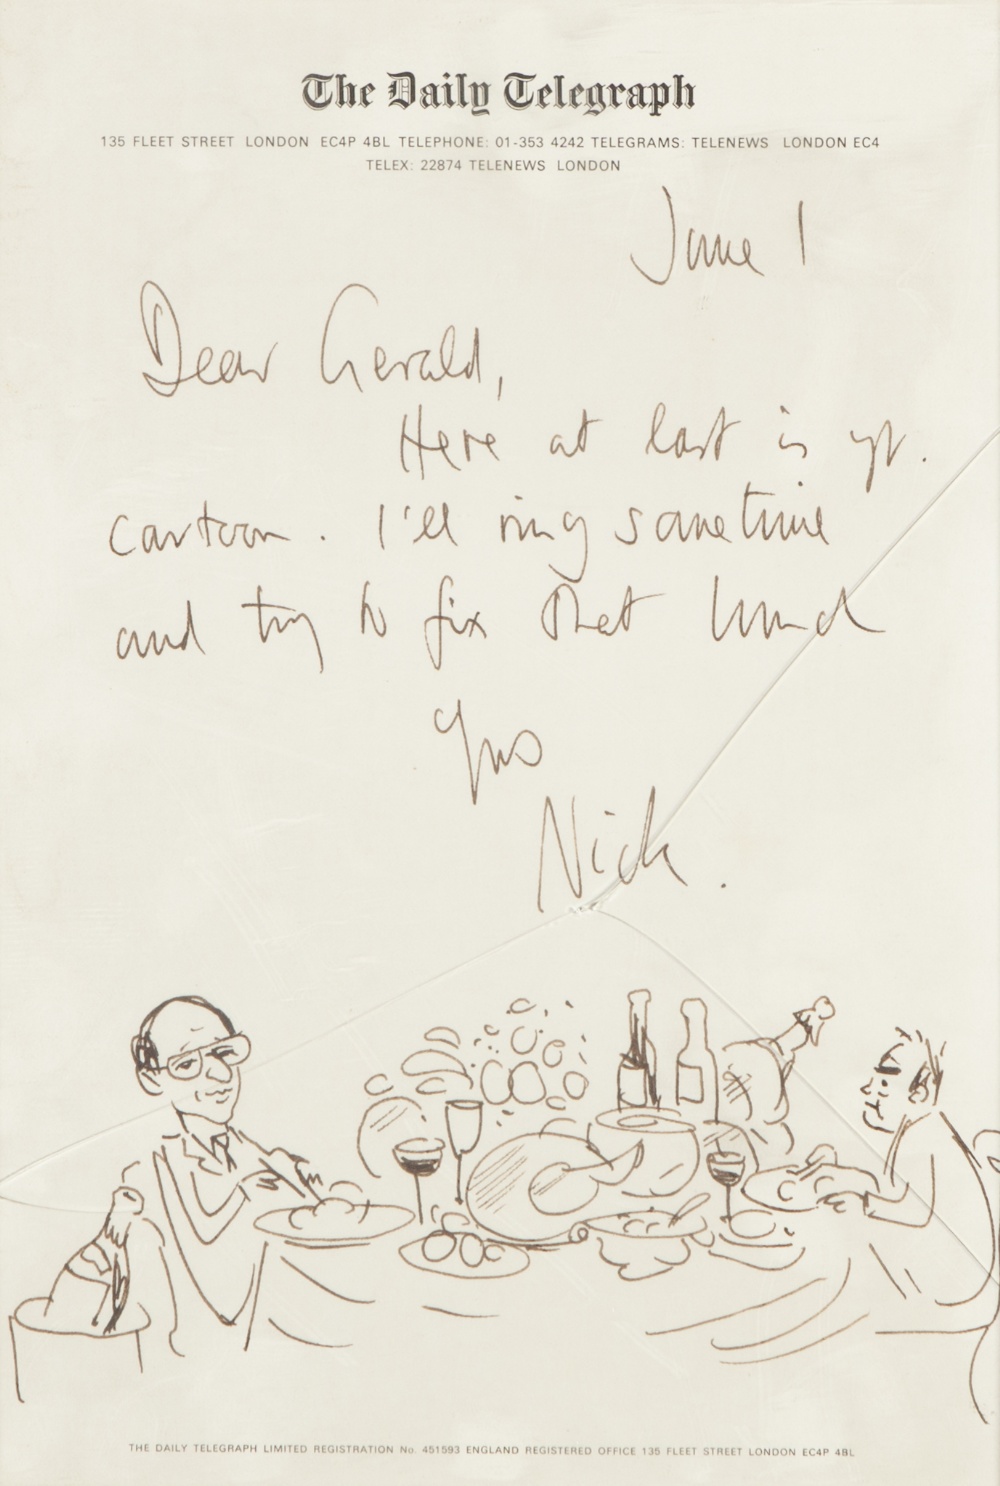 The Daily Telegraph
135 FLEET STREET LONDON EC4P 4BL TELEPHONE: 01-353 4242 TELEGRAMS: TELENEWS LONDON EC4
TELEX: 22874 TELENEWS LONDON
June 1
Dear Gerald,
Here at last is yr.
cartoon. I'll ring sometime
and try to fix that lunch
Yrs
Nick.
THE DAILY TELEGRAPH LIMITED REGISTRATION No. 451593 ENGLAND REGISTERED OFFICE 135 FLEET STREET LONDON EC4P 4BL